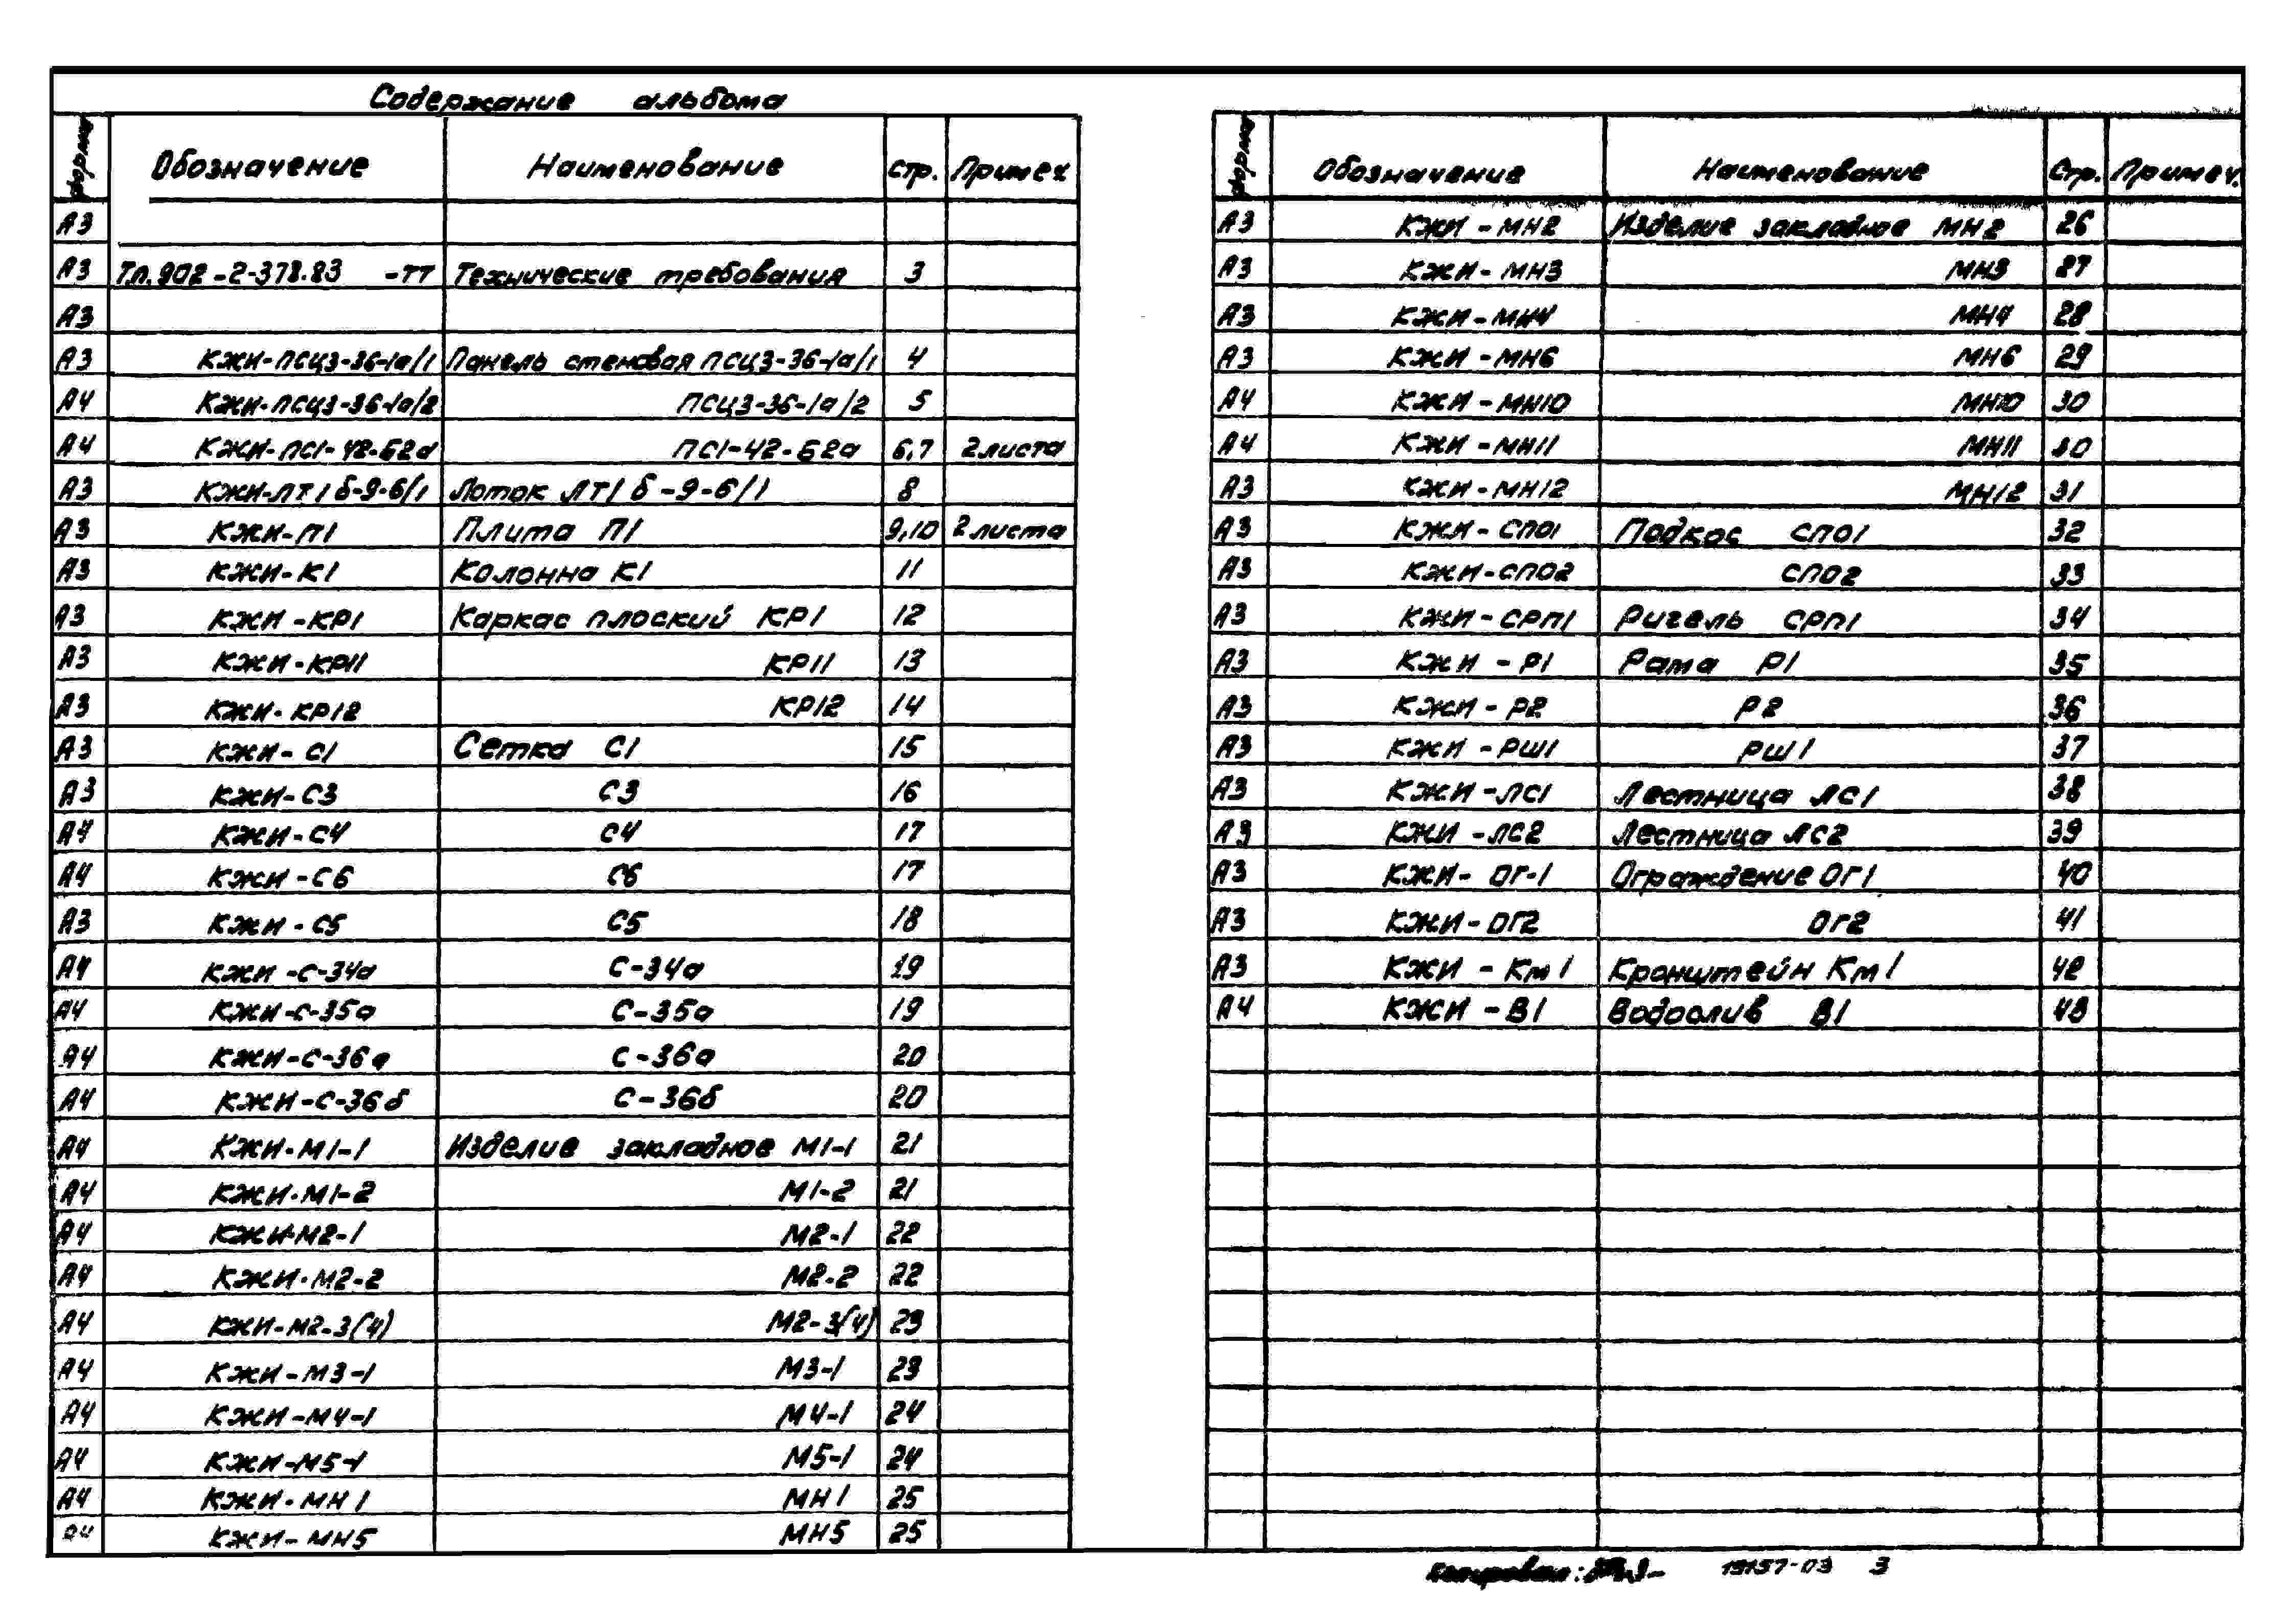 Содержание альбома
Формат Обозначение Наименование стр. Примеч
А3
А3 Т.п. 902-2-378.83 -ТТ Технические требования 3
А3
А3 КЖИ-ПСЦ3-36-1а/1 Панель стеновая ПСЦ3-36-1а/1 4
А4 КЖИ-ПСЦ3-36-1а/2 ПСЦ3-36-1а/2 5
А4 КЖИ-ПС1-42-Б2а ПС1-42-Б2а 6,7 2 листа
А3 КЖИ-ЛТ1б-9-6/1 Лоток ЛТ1б-9-6/1 8
А3 КЖИ-П1 Плита П1 9,10 2 листа
А3 КЖИ-К1 Колонна К1 11
А3 КЖИ-КР1 Каркас плоский КР1 12
А3 КЖИ-КР11 КР11 13
А3 КЖИ-КР12 КР12 14
А3 КЖИ-С1 Сетка С1 15
А3 КЖИ-С3 С3 16
А4 КЖИ-С4 С4 17
А4 КЖИ-С6 С6 17
А3 КЖИ-С5 С5 18
А4 КЖИ-С-34а С-34а 19
А4 КЖИ-С-35а С-35а 19
А4 КЖИ-С-36а С-36а 20
А4 КЖИ-С-36б С-36б 20
А4 КЖИ-М1-1 Изделие закладное М1-1 21
А4 КЖИ-М1-2 М1-2 21
А4 КЖИ-М2-1 М2-1 22
А4 КЖИ-М2-2 М2-2 22
А4 КЖИ-М2-3(4) М2-3(4) 23
А4 КЖИ-М3-1 М3-1 23
А4 КЖИ-М4-1 М4-1 24
А4 КЖИ-М5-1 М5-1 24
А4 КЖИ-МН1 МН1 25
А4 КЖИ-МН5 МН5 25
Формат Обозначение Наименование Стр. Примеч.
А3 КЖИ-МН2 Изделие закладное МН2 26
А3 КЖИ-МН3 МН3 27
А3 КЖИ-МН4 МН4 28
А3 КЖИ-МН6 МН6 29
А4 КЖИ-МН10 МН10 30
А4 КЖИ-МН11 МН11 30
А3 КЖИ-МН12 МН12 31
А3 КЖИ-СП01 Подкос СП01 32
А3 КЖИ-СП02 СП02 33
А3 КЖИ-СРП1 Ригель СРП1 34
А3 КЖИ-Р1 Рама Р1 35
А3 КЖИ-Р2 Р2 36
А3 КЖИ-РШ1 РШ1 37
А3 КЖИ-ЛС1 Лестница ЛС1 38
А3 КЖИ-ЛС2 Лестница ЛС2 39
А3 КЖИ-ОГ-1 Ограждение ОГ1 40
А3 КЖИ-ОГ2 ОГ2 41
А3 КЖИ-Км1 Кронштейн Км1 42
А4 КЖИ-В1 Водослив В1 43
Копировал: 19157-03 3